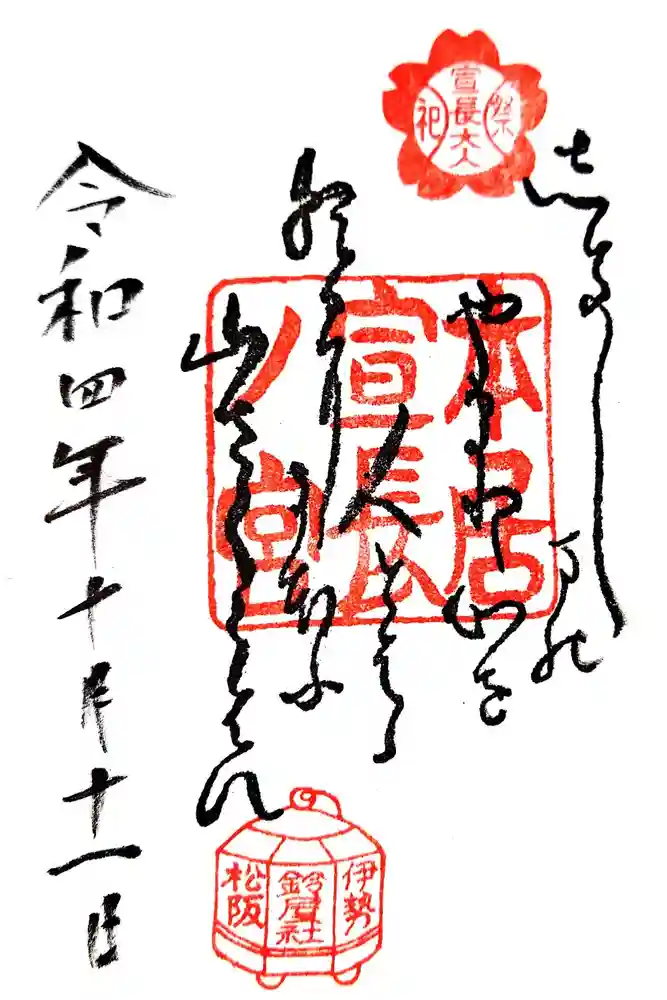 宣長大人
祭祀
志きしまの
やまと心を
人とはゝ
朝日ににほふ
山さくらはな
本居
宣長
ノ宮
令和四年十月十一日
伊勢
鈴屋社
松阪